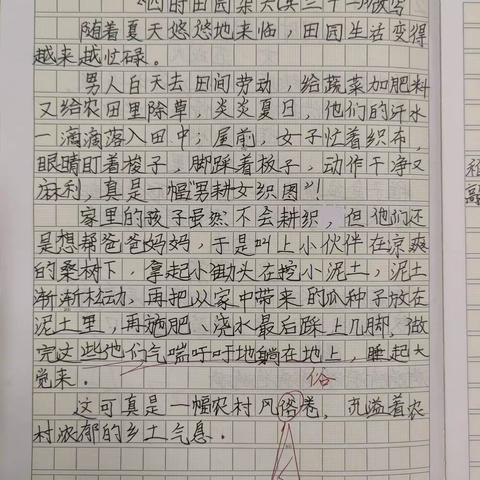 《四时田园杂兴(其三十一)》改写
随着夏天悠悠地来临，田园生活变得
越来越忙碌。
男人白天去田间劳动，给蔬菜加肥料
又给农田里除草，炎炎夏日，他们的汗水
一滴滴落入田中；屋前，女子忙着织布，
眼睛盯着梭子，脚踩着板子，动作干净又
麻利，真是一幅"男耕女织图"！
家里的孩子虽然不会耕织，但他们还
是想帮爸爸妈妈，于是叫上小伙伴在凉爽
的桑树下，拿起小锄头在挖小泥土，泥土
渐渐松动，再把从家中带来的瓜种子放在
泥土里，再施肥、浇水最后踩上几脚，做
完这些他们气喘吁吁地躺在地上，睡起大
觉来。
俗
这可真是一幅农村风俗卷，充溢着农
村浓郁的乡土气息。